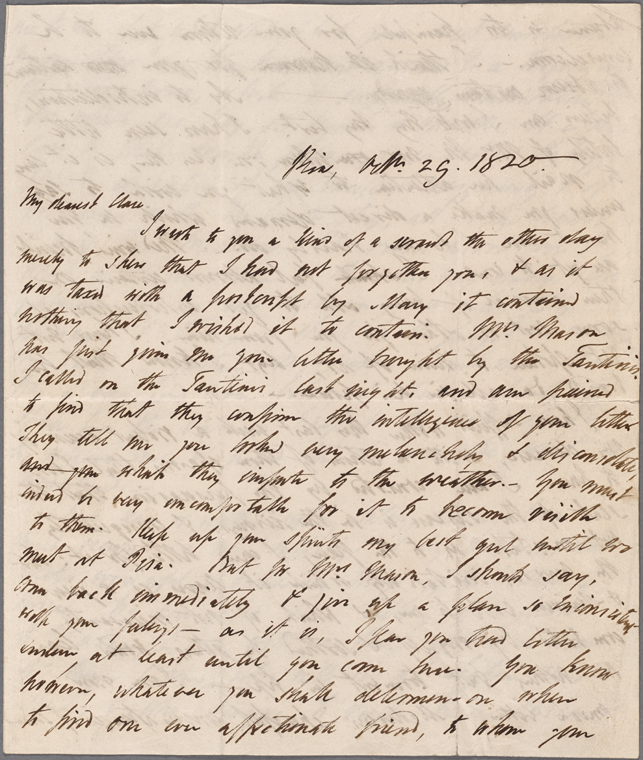 Pisa, Octr. 29. 1820.
My dearest Clare.
I wrote to you a kind of a scrawl the other day
merely to shew that I had not forgotten you, & as it
was taxed with a postscript by Mary it contained
nothing that I wished it to contain. Mrs. Mason
has just given me your letter brought by the Tantinis.
I called on the Tantinis last night, and am grieved
to find that they confirm the intelligence of your letter
They tell me you looked very melancholy & disconsolate,
which they impute to the weather.— You must
indeed be very uncomfortable for it to become visible
to them. Keep up your spirits my best girl until we
meet at Pisa. But for Mrs. Mason, I should say,
come back immediately & give up a plan so inconsistent
with your feelings— as it is, I fear you had better
endure at least until you come here. You know
however, whatever you shall determine on where
to find one ever affectionate friend, to whom your